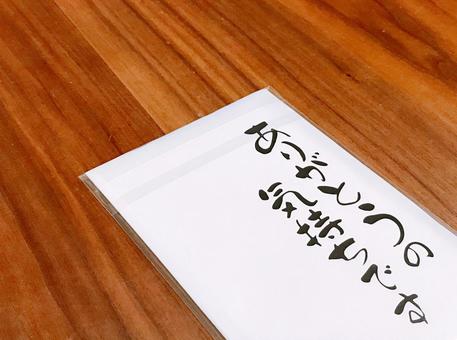 ありがとうの
気持ちです